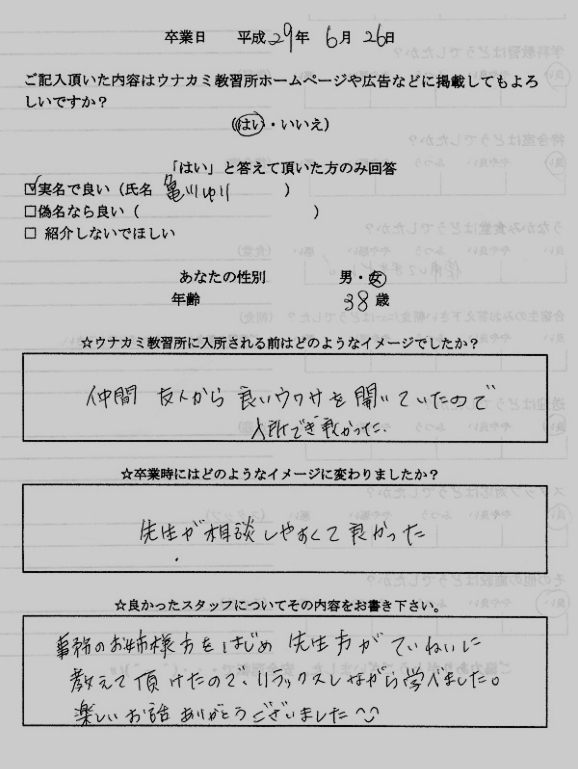 卒業日 平成29年 6月 26日
ご記入頂いた内容はウナカミ教習所ホームページや広告などに掲載してもよろ
しいですか？
(はい・いいえ)
「はい」と答えて頂いた方のみ回答
☑実名で良い（氏名 亀川ゆり ）
□偽名なら良い（ ）
□ 紹介しないでほしい
あなたの性別 男・女
年齢 38歳
☆ウナカミ教習所に入所される前はどのようなイメージでしたか？
仲間 友人から 良いウワサを聞いていたので
入所でき良かった.
☆卒業時にはどのようなイメージに変わりましたか？
先生が相談しやすくて良かった
☆良かったスタッフについてその内容をお書き下さい。
事務のお姉様方をはじめ 先生方がていねいに
教えて頂けたので、リラックスしながら学べました。
楽しいお話ありがとうございました